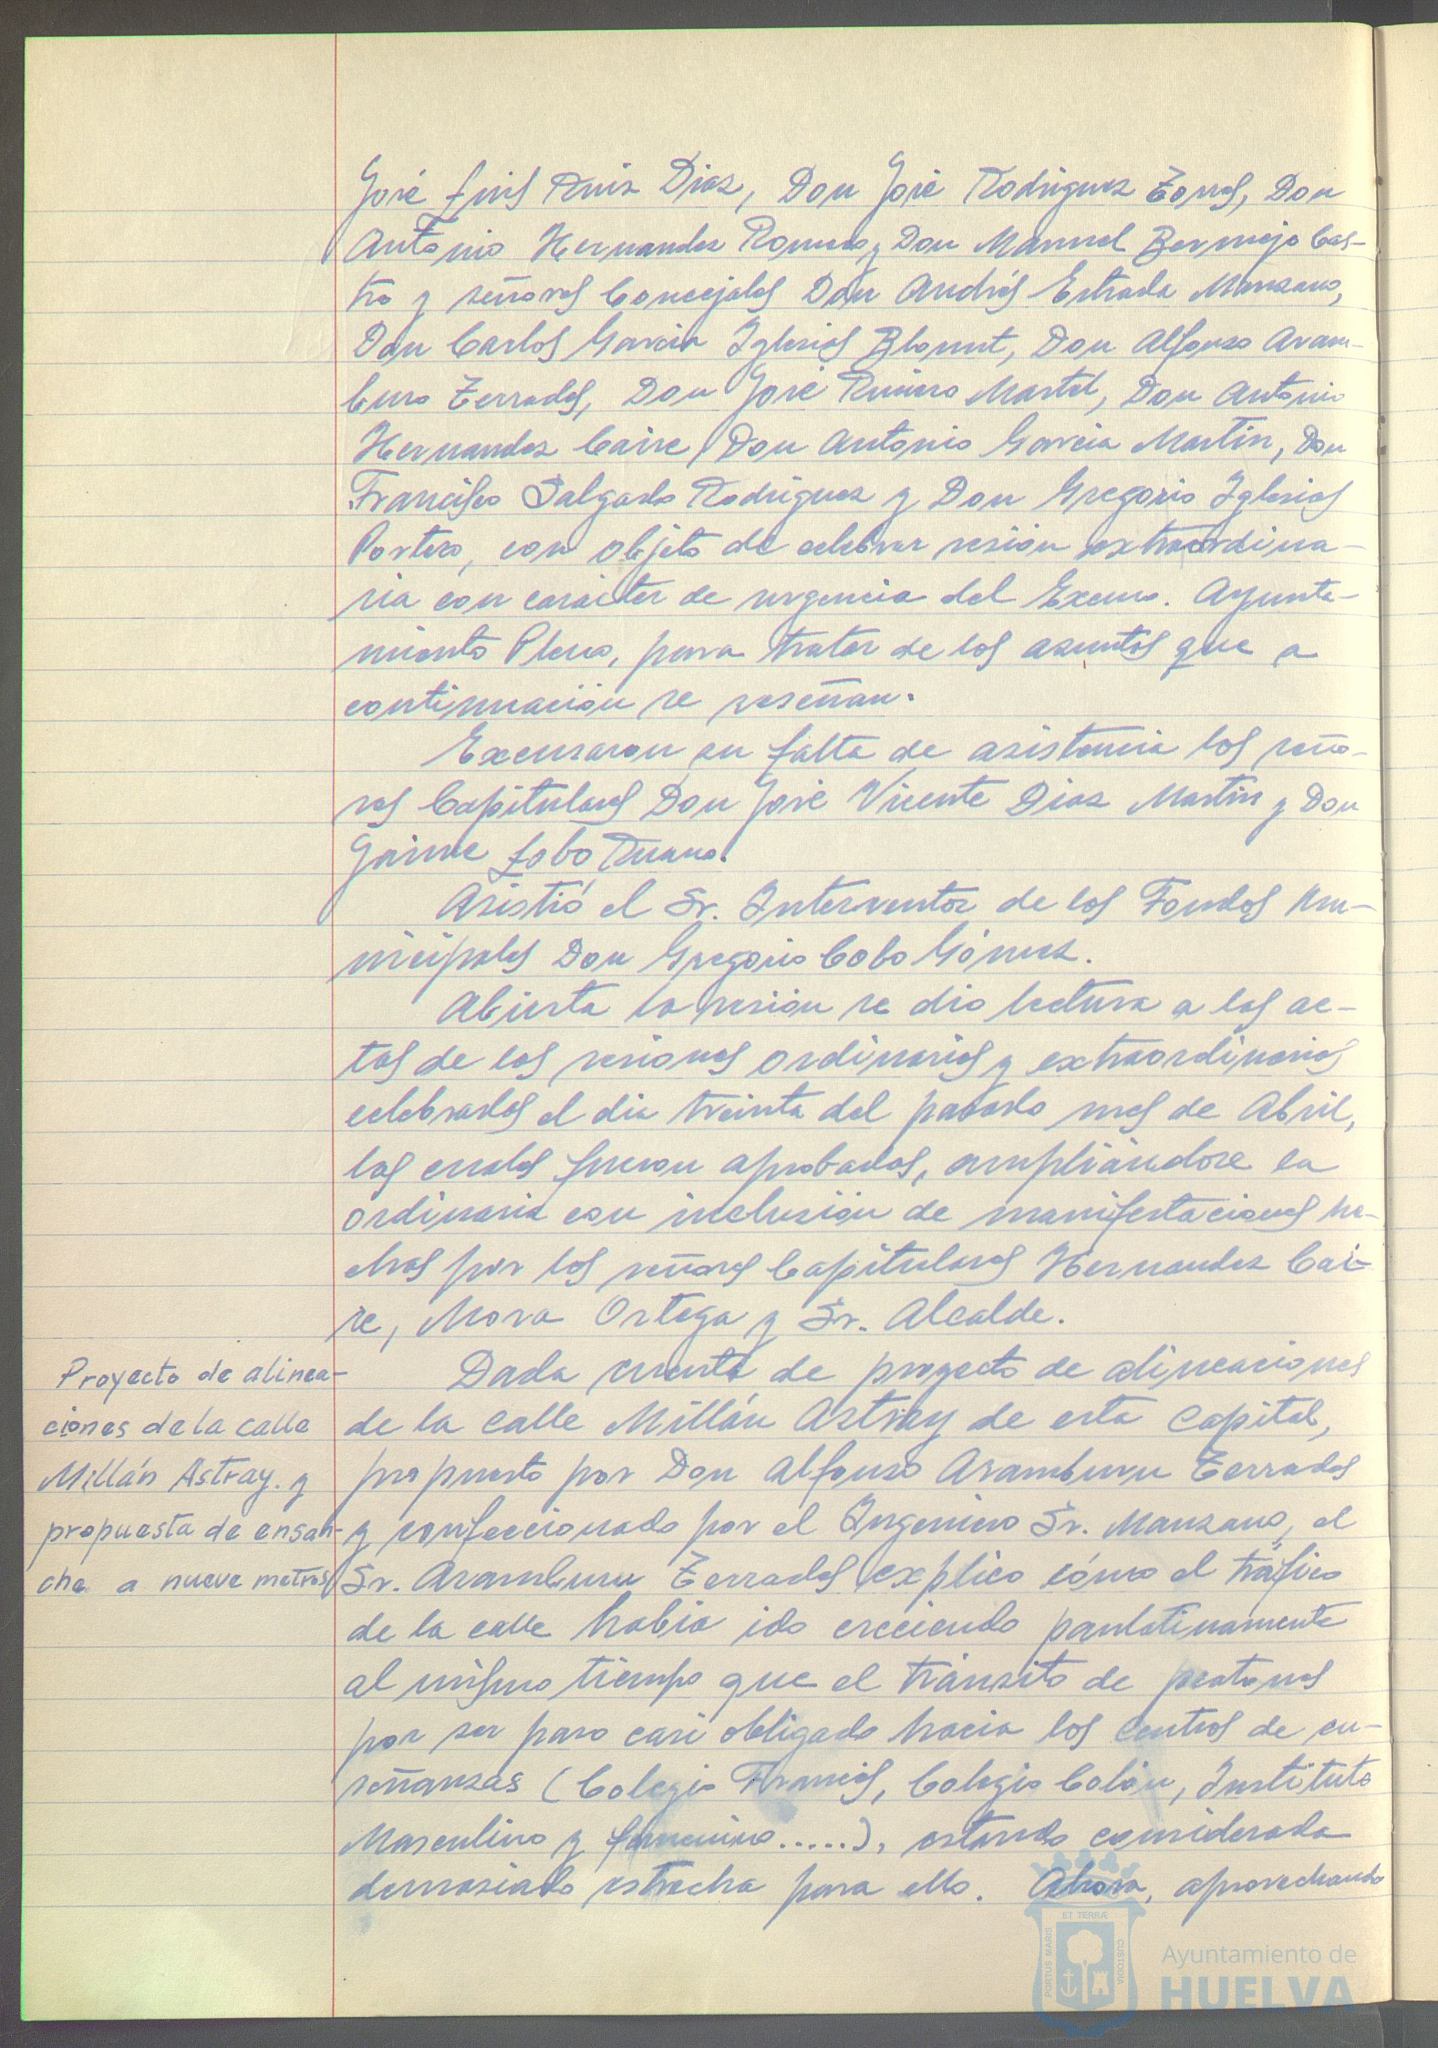 José Luis Ruiz Diaz, Don José Rodriguez Torres, Don
Antonio Hernandez Romero y Don Manuel Bermejo Cas-
tro y señores Concejales Don Andrés Estrada Manzano,
Don Carlos Garcia Iglesias Blount, Don Alfonso Aram-
buru Terrades, Don José Rivero Martel, Don Antonio
Hernandez Caire, Don Antonio Garcia Martin, Don
Francisco Salgado Rodriguez y Don Gregorio Iglesias
Portero, con objeto de celebrar sesión extraordina-
ria con carácter de urgencia del Excmo. Ayunta-
miento Pleno, para tratar de los asuntos que a
continuación se reseñan.
Excusaron su falta de asistencia los seño-
res Capitulares Don José Vicente Diaz Martin y Don
Jaime Lobo Ruano.
Asistió el Sr. Interventor de los Fondos Mu-
nicipales Don Gregorio Cobo Gómez.
Abierta la sesión se dio lectura a las ac-
tas de las sesiones ordinarias y extraordinarias
celebradas el dia treinta del pasado mes de Abril,
las cuales fueron aprobadas, ampliándose la
ordinaria con inclusión de manifestaciones he-
chas por los señores Capitulares Hernandez Cai-
re, Mora Ortega y Sr. Alcalde.
Proyecto de alinea-
ciones de la calle
Millán Astray. y
propuesta de ensan-
che a nueve metros
Dada cuenta de proyecto de alineaciones
de la calle Millán Astray de esta Capital,
propuesto por Don Alfonso Aramburu Terrades
y confeccionado por el Ingeniero Sr. Manzano, el
Sr. Aramburu Terrades explico cómo el tráfico
de la calle habia ido creciendo paulatinamente
al mismo tiempo que el tránsito de peatones
por ser paso casi obligado hacia los centros de en-
señanzas (Colegio Francés, Colegio Colón, Instituto
Masculino y femenino.....), estando considerada
demasiado estrecha para ello. Ahora, aprovechando
PORTUS MARIS
ET TERRÆ
CUSTODIA
Ayuntamiento de
HUELVA